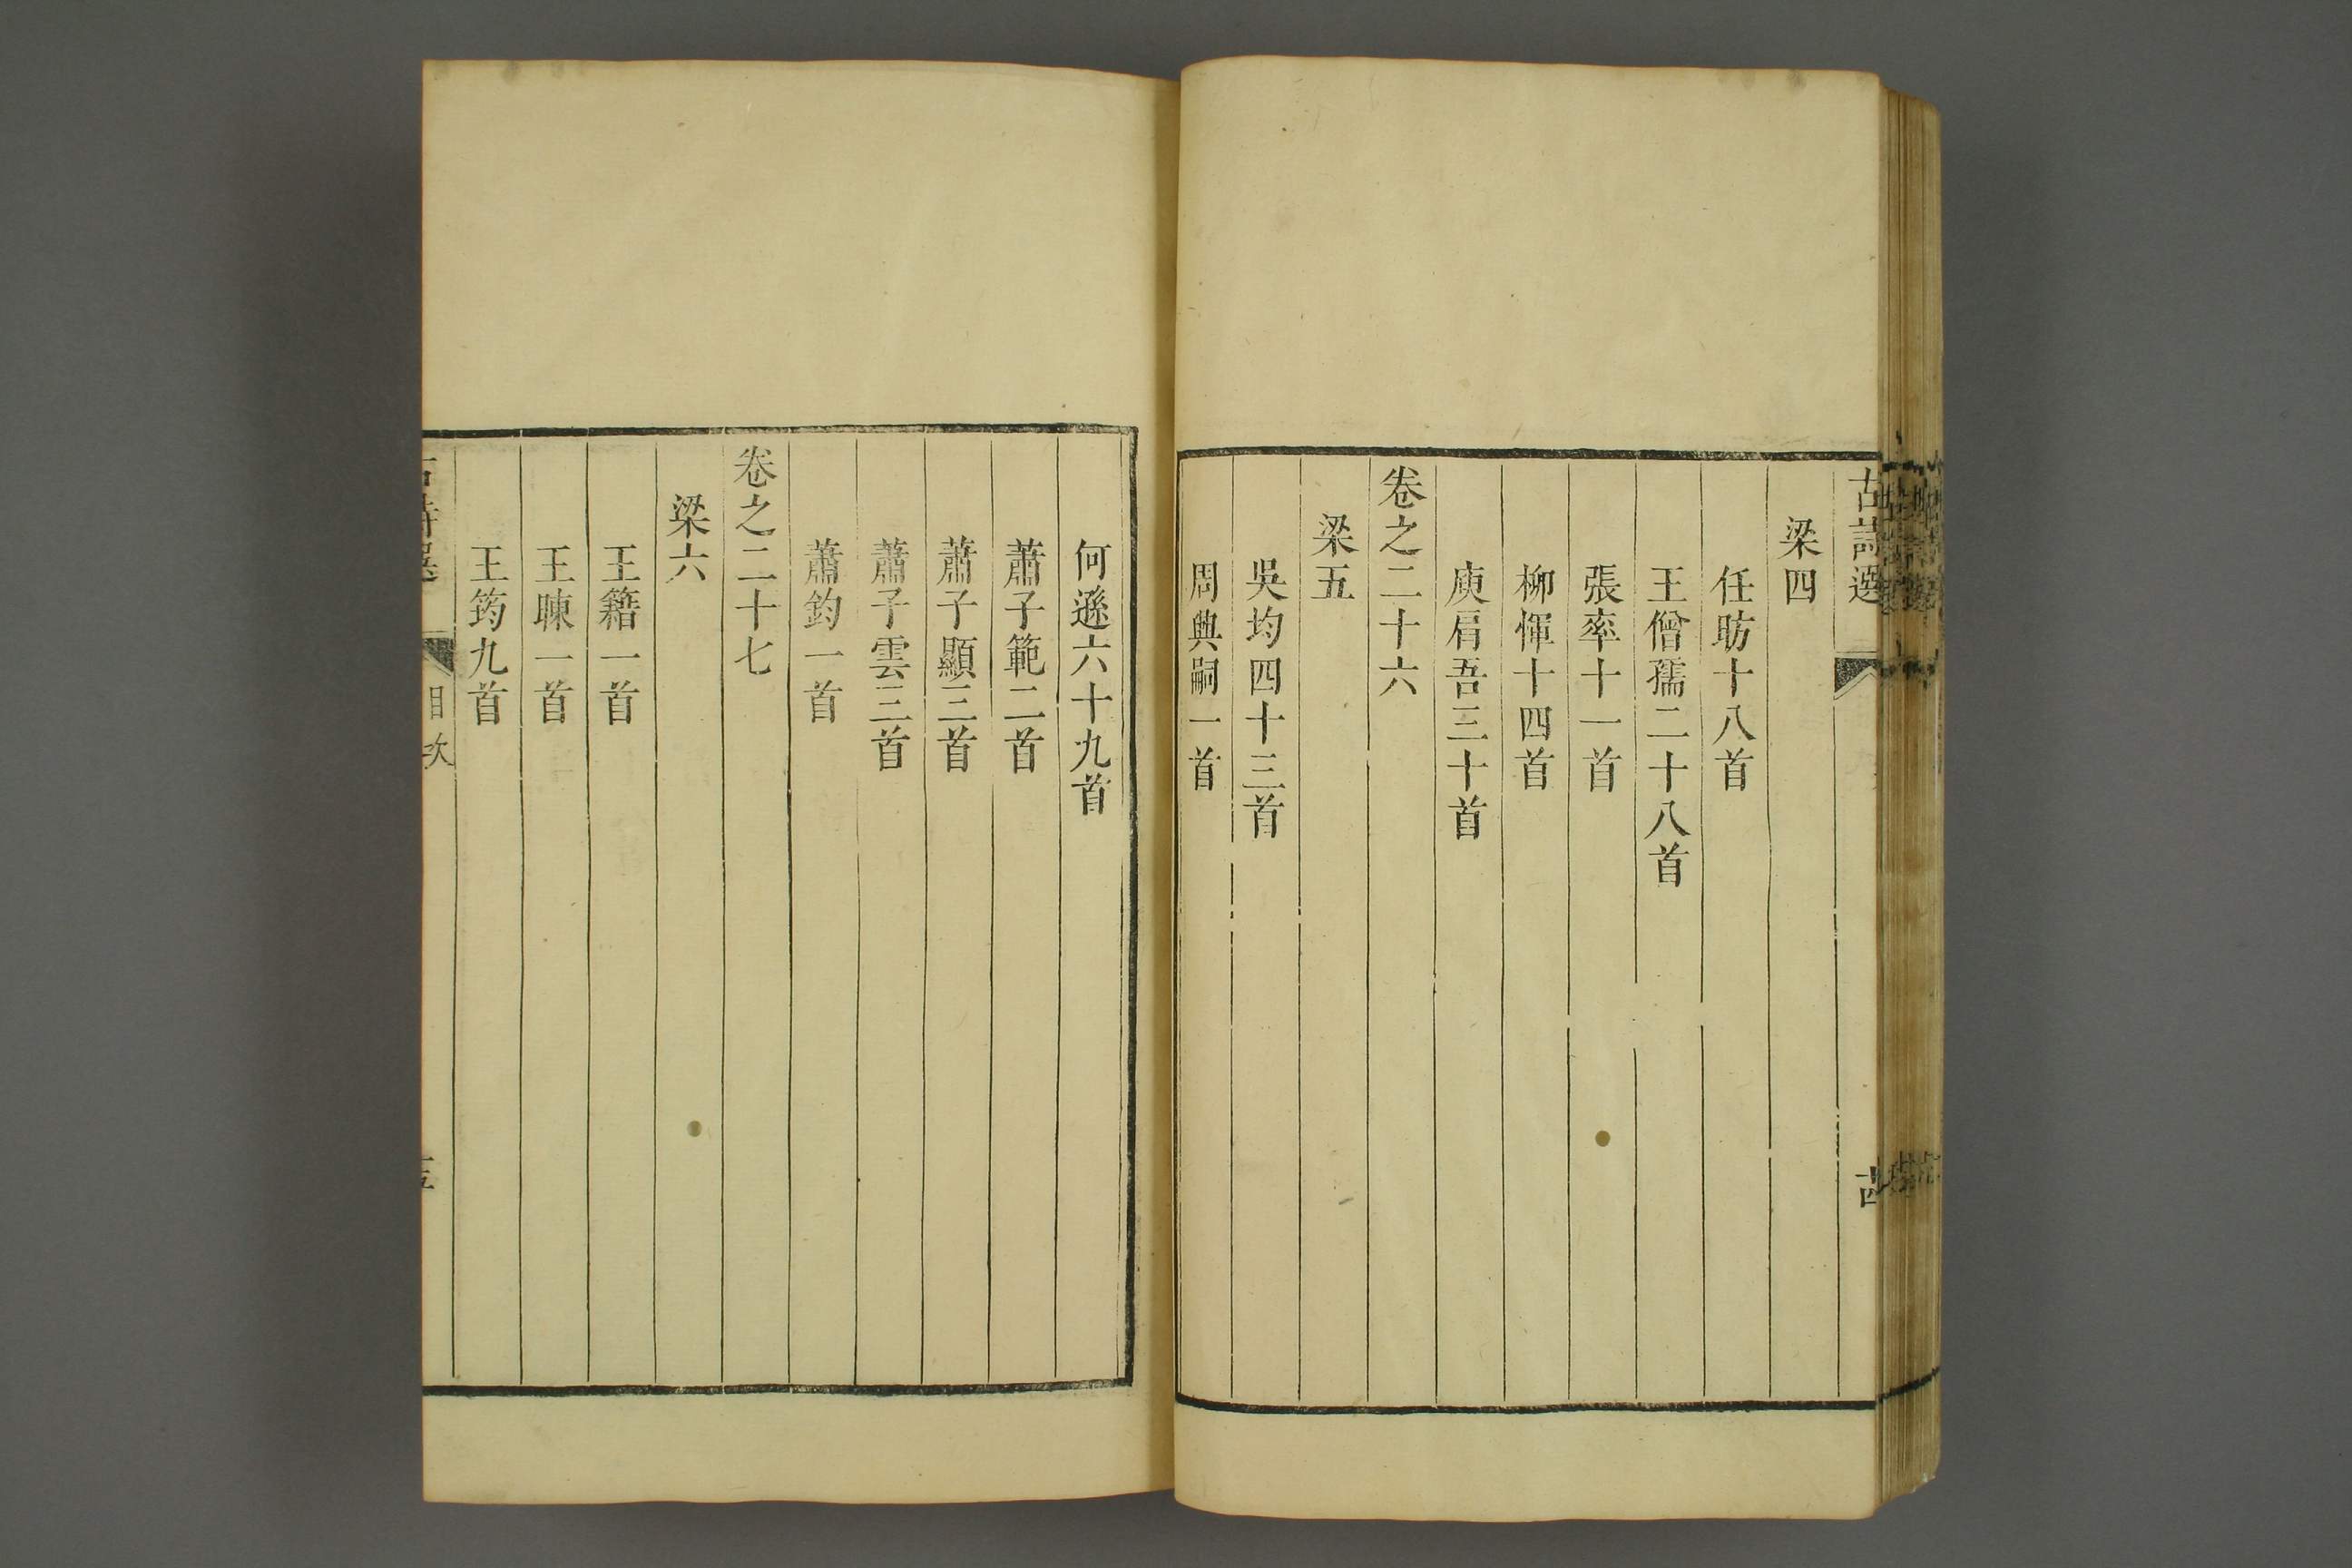 古詩選
十四
梁四
任昉十八首
王僧孺二十八首
張率十一首
柳惲十四首
庾肩吾三十首
卷之二十六
梁五
吳均四十三首
周興嗣一首
何遜六十九首
蕭子範二首
蕭子顯三首
蕭子雲三首
蕭鈞一首
卷之二十七
梁六
王籍一首
王暕一首
王筠九首
古詩選
目次
十五